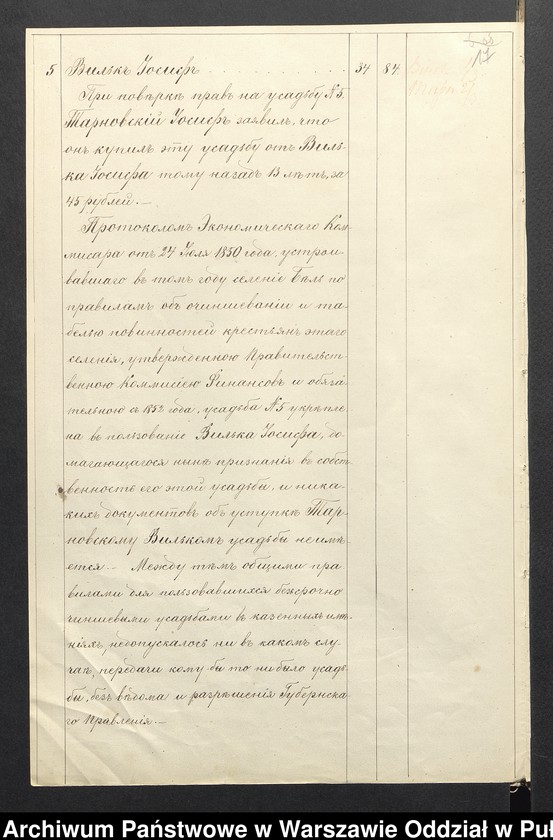 17
5 Вилькъ Іосифъ . . . . . . . . . . 34 84
При повѣркѣ правъ на усадьбу №5,
Тарновскій Іосифъ заявилъ, что
онъ купилъ эту усадьбу отъ Виль-
ка Іосифа тому назадъ 13 лѣтъ, за
45 рублей.—
Протоколомъ Экономическаго Ком-
мисара отъ 24 Іюля 1850 года, устрои-
вавшаго въ томъ году селеніе Бѣль по
правиламъ объ очиншеваніи и та-
белью повинностей крестьянъ этаго
селенія, утвержденною Правительст-
венною Коммисіею Финансовъ и обяза-
тельною съ 1852 года, усадьба №5 укрѣпле-
на въ пользованіе Вилька Іосифа, до-
магающагося нынѣ признанія въ собст-
венность его этой усадьбы, и ника-
кихъ документовъ объ уступкѣ Тар-
новскому Вилькомъ усадьбы не имѣ-
ется.— Между тѣмъ общими пра-
вилами для пользовавшихся безсрочно
чиншевыми усадьбами въ казенныхъ имѣ-
ніяхъ, недопускалось ни въ какомъ слу-
чаѣ, передачи кому бы то ни было усадь-
бы, безъ вѣдома и разрѣшенія Губернска-
го Правленія.—
Archiwum Państwowe w Warszawie Oddział w Puł